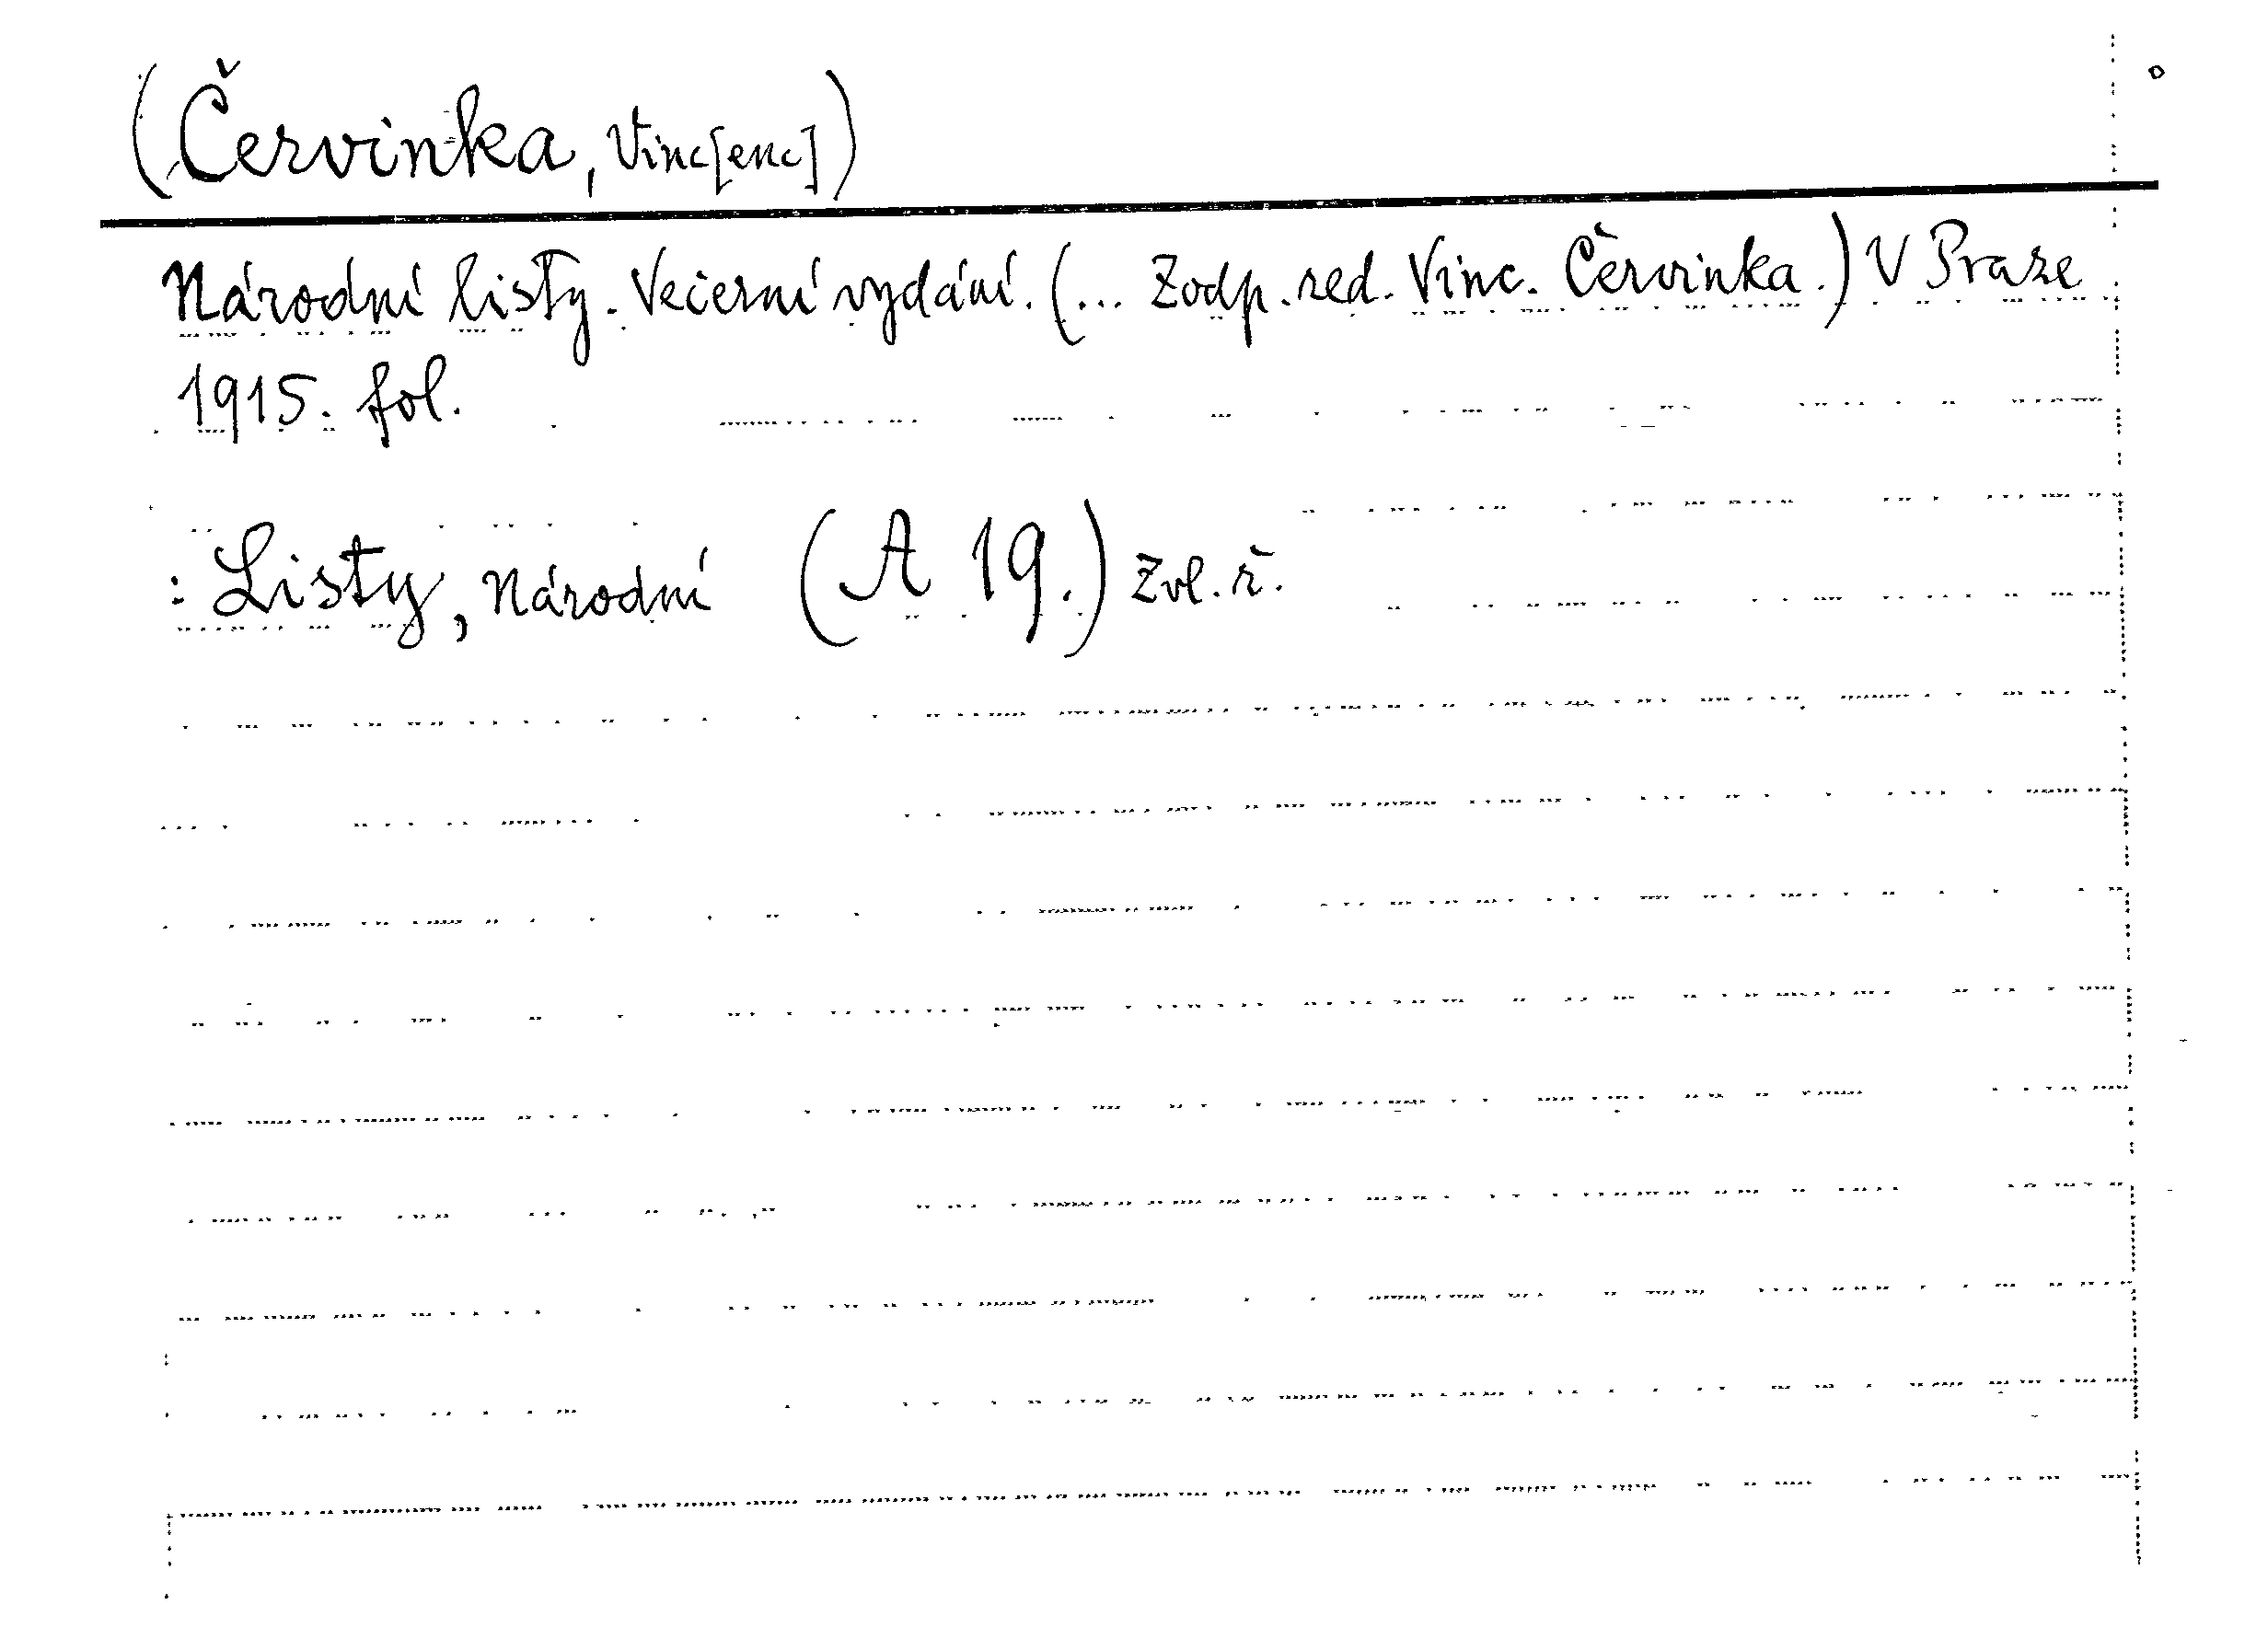 (Červinka, Vinc[enc])
Národní listy. Večerní vydání. (... Zodp. red. Vinc. Červinka.) V Praze
1915. fol.
: Listy, Národní (A 19.) Zvl. ř.